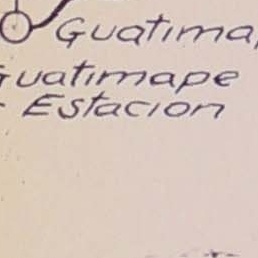 Guatima
Guatimape
Estacion